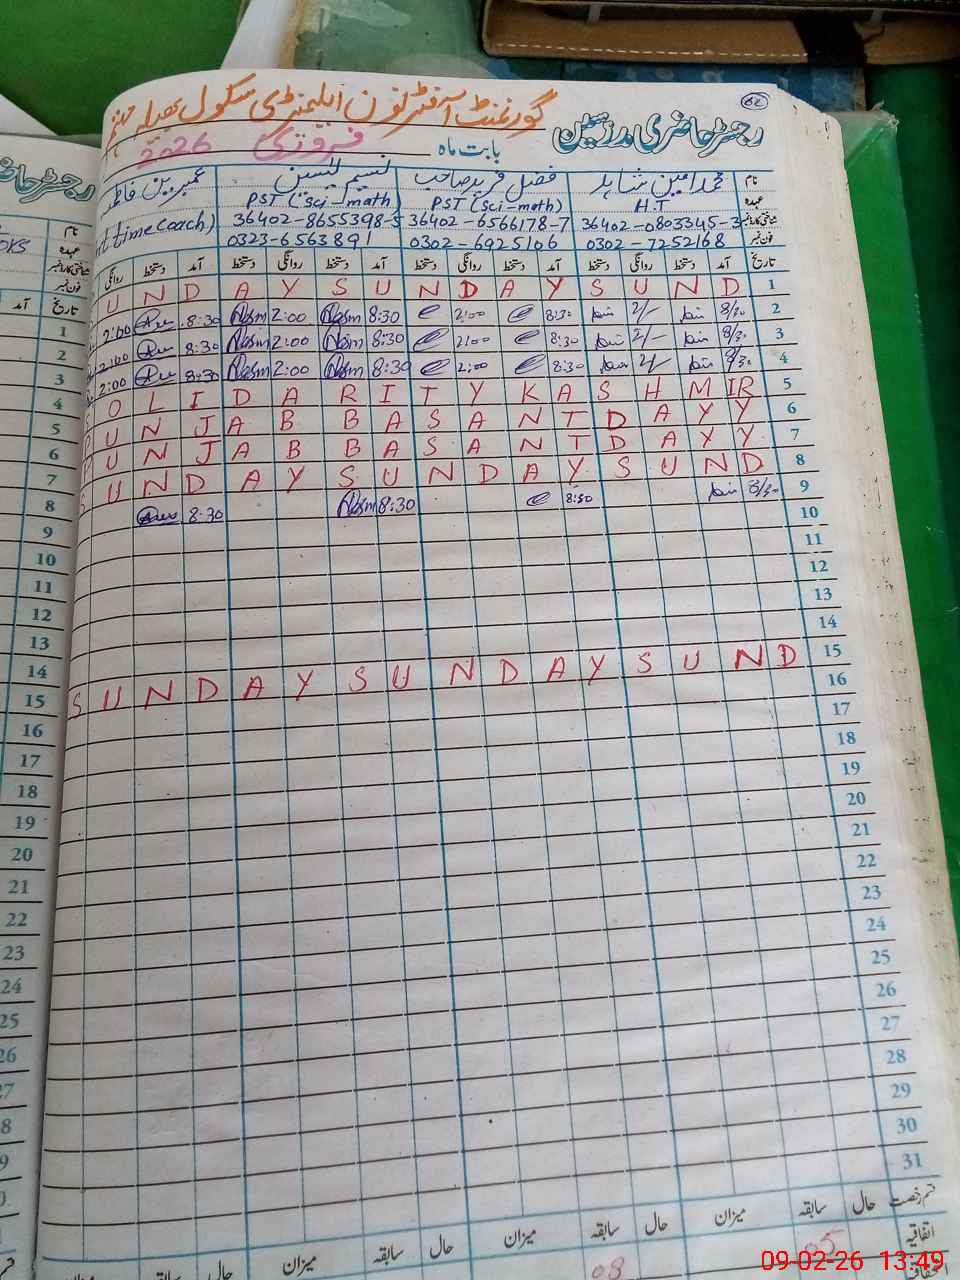 62
رجسٹر حاضری مدرسین
گورنمنٹ آفٹر نون ایلیمنٹری سکول
بابت ماہ فروری 2026
نام محمد امین شاہد فضل فرید صاحب نسیم یٰسین عمبرین فاطمہ
عہدہ H.T PST (Sci-math) PST (Sci-math) time coach)
شناختی کارڈ نمبر 36402-0803345-3 36402-6566178-7 36402-8655398-5
فون نمبر 0302-7252168 0302-6925106 0323-6563891
تاریخ آمد دستخط روانگی دستخط آمد دستخط روانگی دستخط آمد دستخط روانگی دستخط آمد دستخط روانگی
1 U N D A Y S U N D A Y S U N D
2 2:00 8:30 Nasm 2:00 Nasm 8:30 2:00 8:30 2/- 8/30
3 2:00 8:30 Nasm 2:00 Nasm 8:30 2:00 8:30 2/- 8/30
4 2:00 8:30 Nasm 2:00 Nasm 8:30 2:00 8:30 2/- 8/30
5 O L I D A R I T Y K A S H M IR
6 P U N J A B B A S A N T D A Y Y
7 P U N J A B B A S A N T D A Y Y
8 S U N D A Y S U N D A Y S U N D
9 8:30 Nasm 8:30 8:30 8/30
10
11
12
13
14
15 S U N D A Y S U N D A Y S U N D
16
17
18
19
20
21
22
23
24
25
26
27
28
29
30
31
قسم رخصت حال سابقہ میزان حال سابقہ میزان حال سابقہ میزان حال
اتفاقیہ 05 03
رجسٹر حا
نام
عہدہ
شناختی کارڈ نمبر
فون نمبر
تاریخ آمد
1
2
3
4
5
6
7
8
9
10
11
12
13
14
15
16
17
18
19
20
21
22
23
24
25
26
09-02-26 13:49